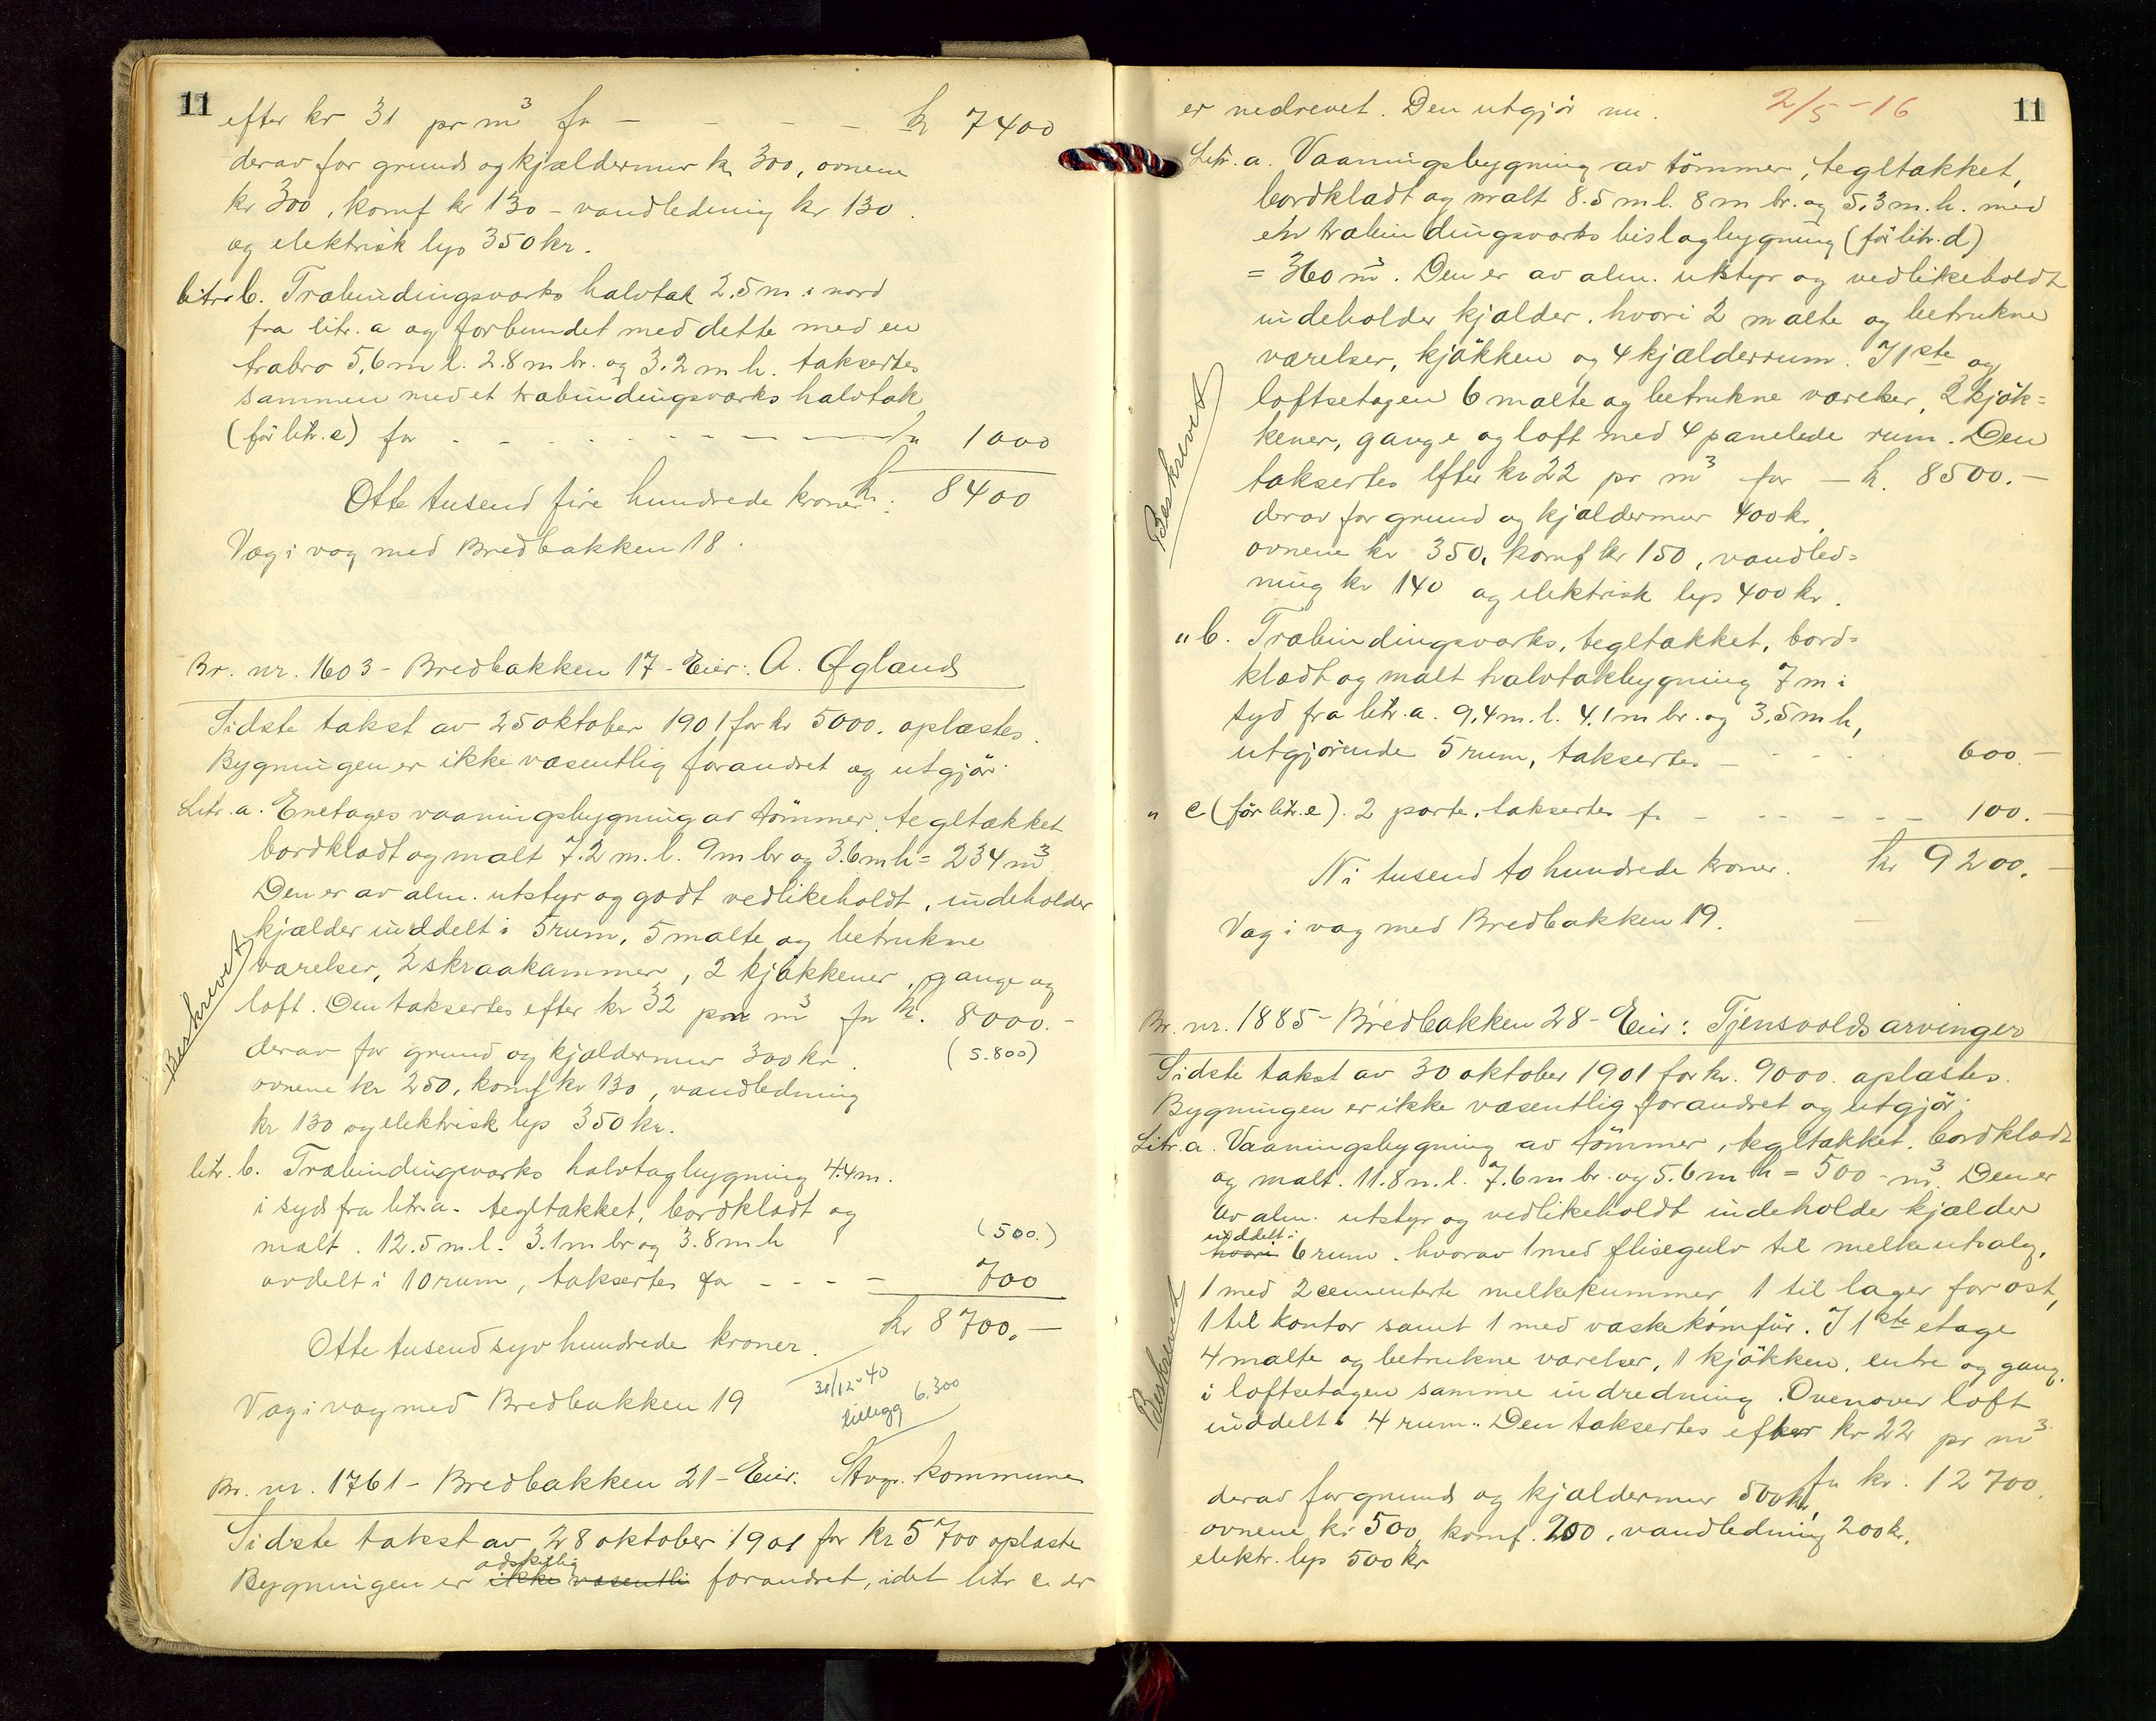 11
efter kr 31 pr m³ for — — — — kr 7400
derav for grund og kjældermur kr 300, ovnene
kr 300, komf kr 130 - vandledning kr 130.
og elektrisk lys 350 kr.
litr. b. Træbindingsværks halvtak 2.5 m i nord
fra litr. a og forbundet med dette med en
træbro 5.6 m l. 2.8 m br. og 3.2 m h. taksertes
sammen med et træbindingsværks halvtak
(før litr. c) for - - - - - - - — — — kr 1000
Otte tusend fire hundrede kroner kr. 8400
Væg i væg med Bredbakken 18.
Br. nr. 1603 - Bredbakken 17 - Eier: A. Øglænd
Sidste takst av 25 oktober 1901 for kr 5000. oplæstes.
Bygningen er ikke væsentlig forandret og utgjør:
Litr. a. Enetages vaaningsbygning av tømmer, tegltækket
bordklædt og malt 7.2 m. l. 9 m br og 3.6 m h = 234 m³
Den er av alm. utstyr og godt vedlikeholdt, indeholder
kjælder inddelt i 5 rum, 5 malte og betrukne
værelser, 2 skraakammer, 2 kjøkkener, gange og
loft. Den taksertes efter kr 32 pr m³ for kr. 8000.-
derav for grund og kjældermur 300 kr. (5.800)
ovnene kr 250, komf kr 130, vandledning
kr 130 og elektrisk lys 350 kr.
Beskrevet
litr. b. Træbindingsværks halvtagbygning 4.4 m.
i syd fra litr. a. tegltækket, bordklædt og
malt. 12.5 m. l. 3.1 m br og 3.8 m h (500.)
avdelt i 10 rum, taksertes for - - - — 700
Otte tusend syv hundrede kroner. kr 8700.—
Væg i væg med Bredbakken 19
30/12-40
tillegg 6.300
Br. nr. 1761 - Bredbakken 21 - Eier: Stvgr. kommune
Sidste takst av 28 oktober 1901 for kr 5700 oplæste
adskilig
Bygningen er ikke væsentli forandret, idet litr c. er
2/5-16
11
er nedrevet. Den utgjør nu.
Litr. a. Vaaningsbygning av tømmer, tegltækket,
bordklædt og malt 8.5 m l. 8 m br. og 5.3 m. h. med
en træbindingsværks bislagbygning (før litr. d)
= 360 m³. Den er av alm. utstyr og vedlikeholdt
indeholder kjælder, hvori 2 malte og betrukne
værelser, kjøkken og 4 kjælderrum. I 1ste og
loftsetagen 6 malte og betrukne værelser, 2 kjøk=
kener, gange og loft med 4 panelede rum. Den
taksertes efter kr 22 pr m³ for — kr. 8500.—
derav for grund og kjældermur 400 kr,
ovnene kr 350, komf kr 150, vandled=
ning kr 140 og elektrisk lys 400 kr.
Beskrevet
" b. Træbindingsværks, tegltækket, bord=
klædt og malt halvtakbygning 7 m i
syd fra litr. a. 9.4 m. l. 4.1 m br. og 3.5 m h,
utgjørende 5 rum, taksertes — - - - - 600.—
" c (før litr. e). 2 porte, taksertes for - - — — — 100.—
Ni tusend to hundrede kroner. kr 9200.—
Væg i væg med Bredbakken 19.
Br. nr. 1885 - Bredbakken 28 - Eier: Tjensvolds arvinger
Sidste takst av 30 oktober 1901 for kr. 9000. oplæstes.
Bygningen er ikke væsentlig forandret og utgjør:
Litr. a. Vaaningsbygning av tømmer, tegltækket, bordklædt
og malt. 11.8 m. l. 7.6 m br. og 5.6 m h = 500 - m³. Den er
av alm. utstyr og vedlikeholdt indeholder kjælder
inddelt i
hvori 6 rum. hvorav 1 med flisegulv til melkeutsalg,
1 med 2 cementerte melkekummer, 1 til lager for ost,
1 til kontor samt 1 med vaskekomfür. I 1ste etage
4 malte og betrukne værelser, 1 kjøkken, entre og gang,
i loftsetagen samme indredning. Ovenover loft
inddelt i 4 rum. Den taksertes efter kr 22 pr m³
for kr. 12700.
Beskrevet
derav for grund og kjældermur 500 kr,
ovnene kr 500, komf. 200, vandledning 200 kr,
elektr. lys 500 kr